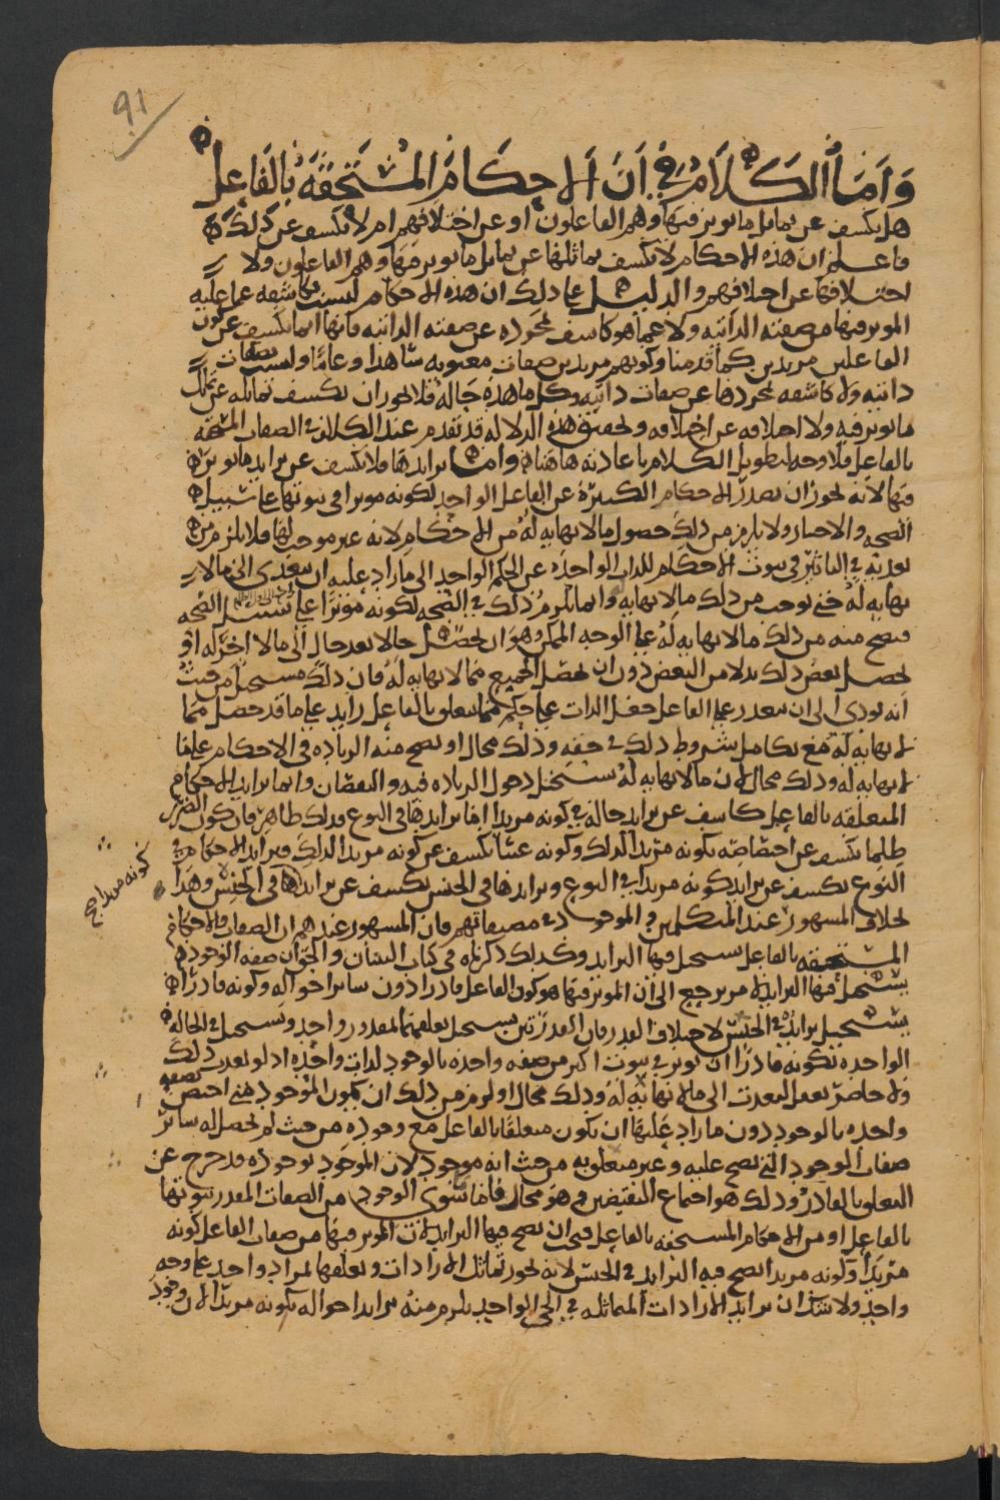 ٩١
وأما الكلام في أن الأحكام المستحقة بالفاعل
هل يكشف عن تماثل ما يوثر فيها وهم الفاعلون او عن اختلافهم ام لا يكشف عن ذلك
فاعلم ان هذه الاحكام لا يكشف تماثلها عن تماثل ما يوثر فيها وهم الفاعلون ولا
اختلافها عن اختلافهم والدليل على ذلك ان هذه الاحكام ليست بكاشفه عما عليه
الموثر فيها من صفته الذاتيه ولا عما هو كاشف بمجرده عن صفته الذاتيه فانها انما تكشف عن كون
الفاعلين مريدين كما قدمنا وكونهم مريدين صفات معنويه شاهدا وغائبا وليست بصفات
ذاتيه ولا كاشفه بمجردها عن صفات ذاتيه وكل ما هذه حاله فلا يجوز ان يكشف تماثله عن تماثل
ما يوثر فيه ولا اختلافه عن اختلافه وتحقيق هذه الدلاله قد تقدم عند الكلام في الصفات المستحقه
بالفاعل فلا وجه لتطويل الكلام باعادته هاهنا وأما تزايدها فلا يكشف عن تزايد ما يوثر
فيها لانه يجوز ان تصدر الاحكام الكثيرة عن الفاعل الواحد لكونه موثرا في ثبوتها على سبيل
الصحه والاختيار ولا يلزم من ذلك حصول ما لا نهايه له من الاحكام لانه غير موجب لها فلا يلزم من
تعديه في التاثير في ثبوت الاحكام للذات الواحده عن الحكم الواحد الى ما زاد عليه ان يتعدى الى ما لا
نهايه له حتى يوجب من ذلك ما لا نهايه وانما يلزم ذلك في الصحه لكونه موثرا على سبيل الصحه
فيصح منه من ذلك ما لا نهايه له على الوجه الممكن وهو ان يحصل حالا بعد حال الى ما لا اخر له او
يحصل بعض ذلك بدلا من البعض دون ان يحصل الجميع مما لا نهايه له فان ذلك مستحيل من حيث
انه يودي الى ان يتعذر على الفاعل جعل الذات على حكم مما يتعلق بالفاعل زايد على ما قد حصل مما
لا نهايه له مع تكامل شروط ذلك في حقه وذلك محال او يصح منه الزياده في الاحكام على ما
لا نهايه له وذلك محال لان ما لا نهايه له يستحيل دخول الزياده فيه والنقصان وانما تزايد الاحكام
المتعلقه بالفاعل كاشف عن تزايد حاله في كونه مريدا اما تزايدها في النوع فذلك ظاهر فان كون الضرر
ظلما يكشف عن اختصاصه بكونه مريدا لذلك وكونه عبثا يكشف عن كونه مريدا لذلك وتزايد الاحكام في
النوع يكشف عن تزايد كونه مريدا في النوع وتزايدها في الجنس يكشف عن تزايدها في الجنس وهذا
كونه مريدا صح
خلاف المشهور عند المتكلمين والموجود في مصنفاتهم فان المشهور عندهم ان الصفات والاحكام
المستحقه بالفاعل يستحيل فيها التزايد وكذلك ذكرناه في كتاب البيان والجواب ان صفه الوجود
يستحيل فيها التزايد لامر يرجع الى ان الموثر فيها هو كون الفاعل قادرا دون سائر احواله وكونه قادرا
يستحيل تزايده في الجنس لاختلاف القدر فان القدرتين يستحيل تعلقهما بمقدور واحد ويستحيل في الحاله
الواحده بكونه قادرا ان يوثر في ثبوت اكثر من صفه واحده بالوجود لذات واحده اذ لو تعدى ذلك
ولا حاصر يعقل لتعدت الى ما لا نهايه له وذلك محال او لزم من ذلك ان يكون الموجود متى اختص بصفه
واحده بالوجود دون ما زاد عليها ان يكون متعلقا بالفاعل مع وجوده من حيث لم تحصل له سائر
صفات الوجود التي تصح عليه وغير متعلق به من حيث انه موجود لان الموجود بوجوده قد خرج عن
التعلق بالقادر وذلك هو اجتماع النقيضين وهو محال فاما سوى الوجود من الصفات المقدر ثبوتها
بالفاعل او من الاحكام المستحقه بالفاعل فيجب ان يصح فيها التزايد لان الموثر فيها من صفات الفاعل كونه
مريدا وكونه مريدا يصح فيه التزايد في الجنس لانه يجوز تماثل الارادات وتعلقها بمراد واحد على وجه
واحد ولا شك ان تزايد الارادات المتماثله في الحي الواحد يلزم منه تزايد احواله بكونه مريدا لان وجود